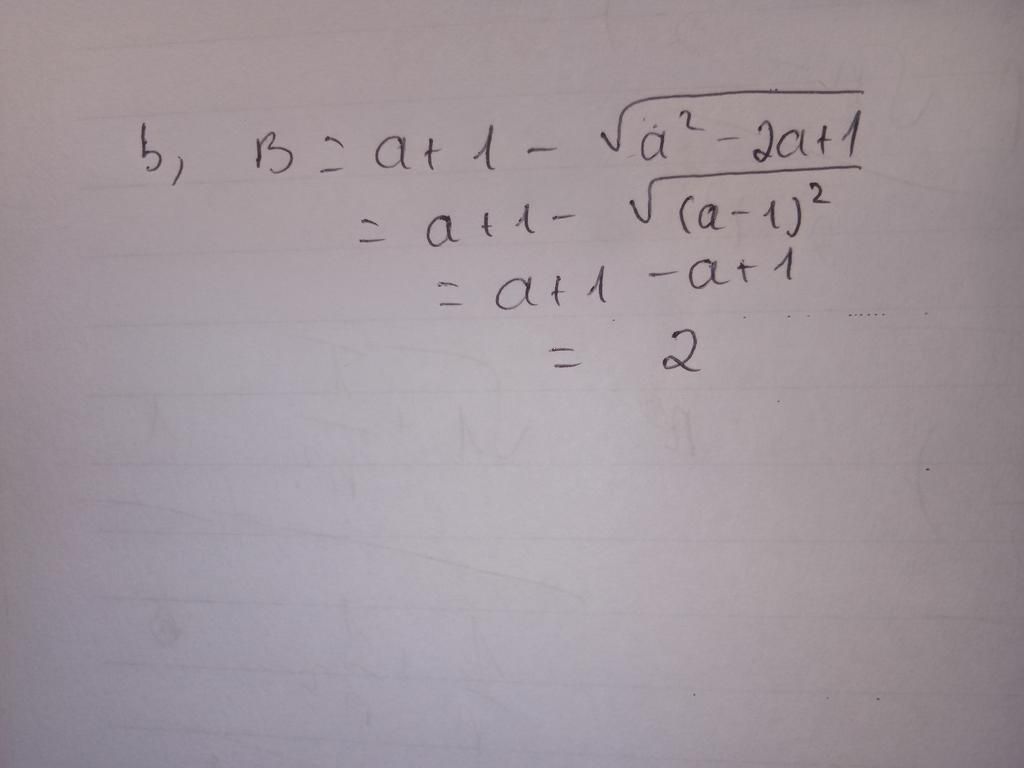 b, B = a + 1 - √(a² - 2a + 1)
= a + 1 - √(a - 1)²
= a + 1 - a + 1
= 2